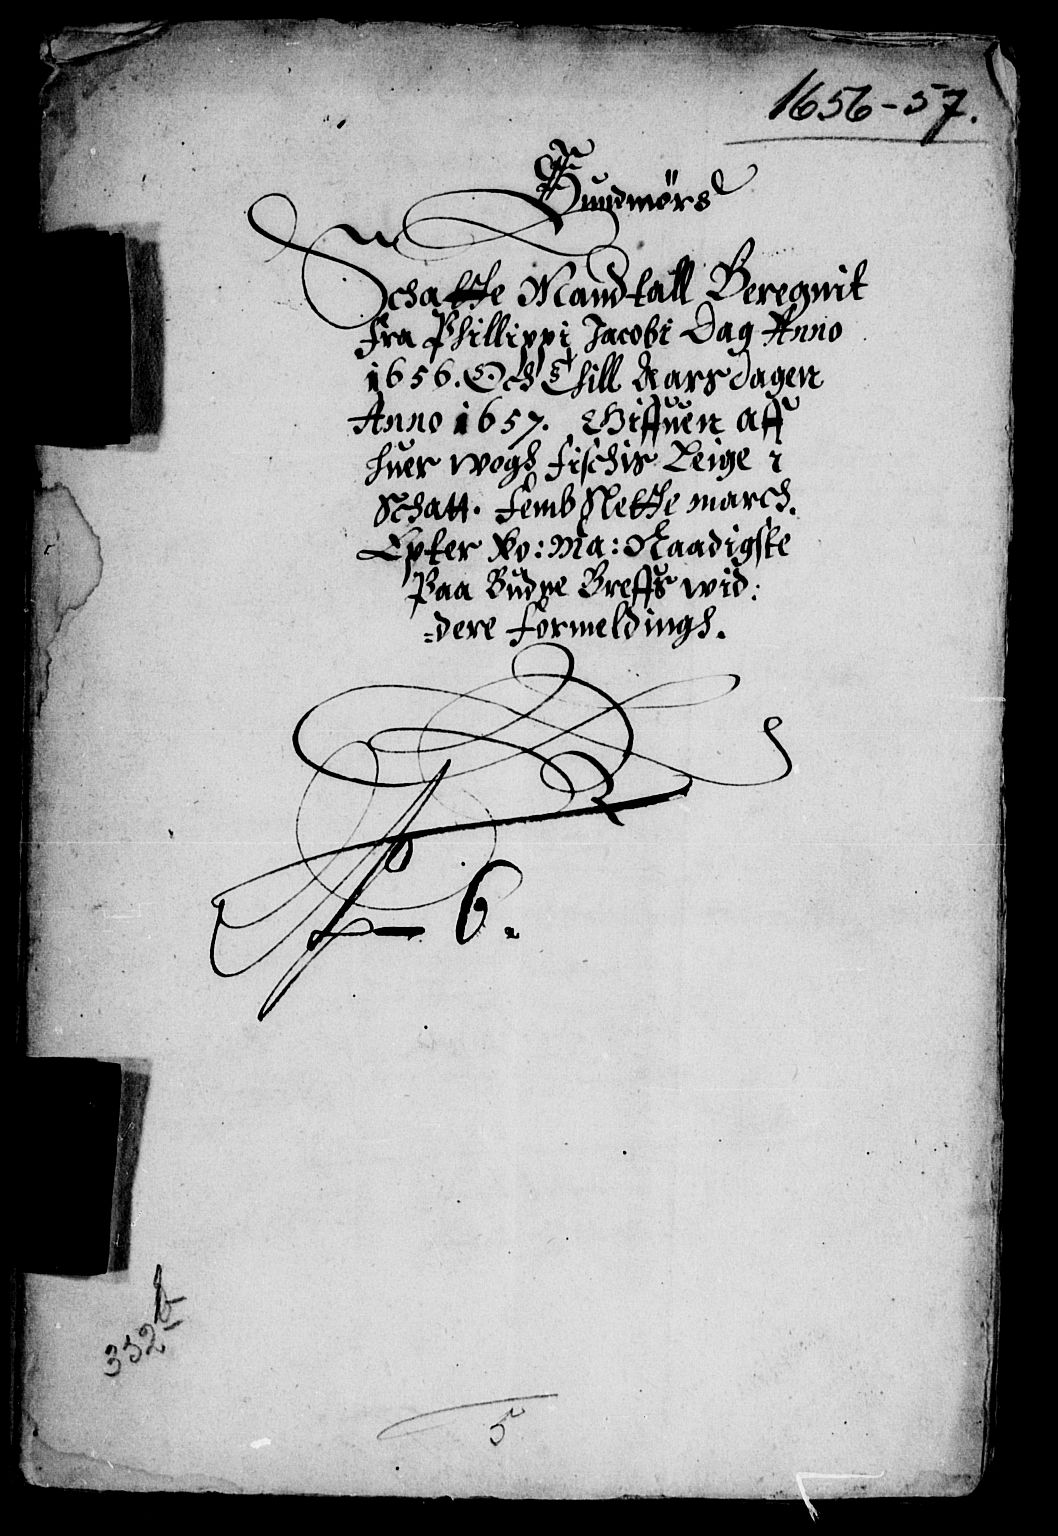 1656-57.
Sundmörs
Schatte Mandtall Beregnit
Fra Phillippi Jacobi Dag Anno
1656. Och Thill Aarsdagen
Anno 1657. Giffuen aff
huer wogh fischis Leige i
Schatt. femb Slette march.
Epter Ko: Ma: Naadigste
Paa Budne Breffs wid:
=dere formeldingh.
6.
332 b
5